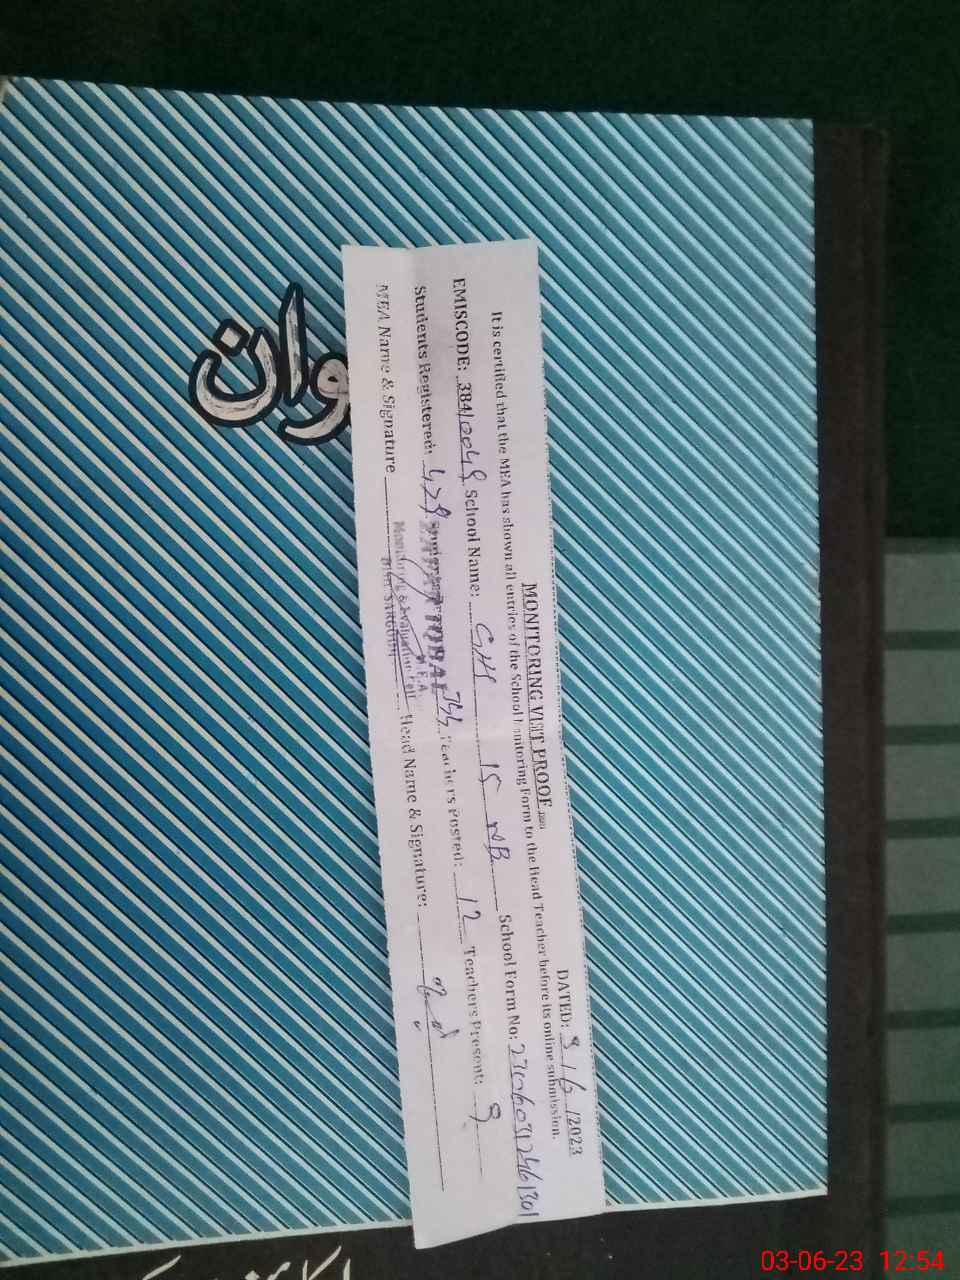 MONITORING VISIT PROOF
DATED: 3/6/2023
It is certified that the MEA has shown all entries of the School Monitoring Form to the Head Teacher before its online submission.
EMISCODE: 38410048 School Name: GH 15 NB School Form No:
Students Registered: 428 Students Teachers Posted: 12 Teachers Present: 9
MEA Name & Signature Head Name & Signature:
M.E.A
Monitoring & Evaluation Cell
Distt. SARGODHA
وان
03-06-23 12:54